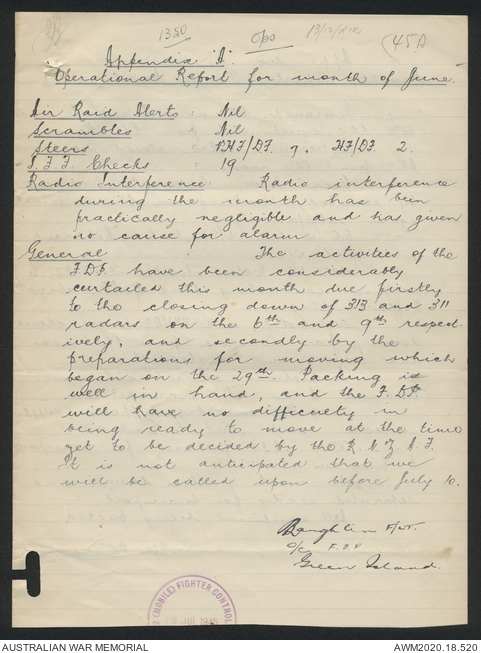 1350
Ops
13/12/
45A
Appendix 'A'.
Operational Report for month of June.
Air Raid Alerts : Nil
Scrambles : Nil
Steers : VHF/DF. 7. HF/DF 2.
I.F.F. Checks : 19.
Radio Interference: Radio interference
during the month has been
practically negligible and has given
no cause for alarm.
General: The activities of the
F.D.P. have been considerably
curtailed this month due firstly
to the closing down of 313 and 311
radars on the 6th and 9th respect-
ively, and secondly by the
preparations for moving which
began on the 29th. Packing is
well in hand, and the F.D.P.
will have no difficulty in
being ready to move at the time
yet to be decided by the R.N.Z.A.F.
It is not anticipated that we
will be called upon before July 10.
F/Lt.
O/C F.D.P
Green Island.
(MOBILE) FIGHTER CONTROL
AUSTRALIAN WAR MEMORIAL
AWM2020.18.520